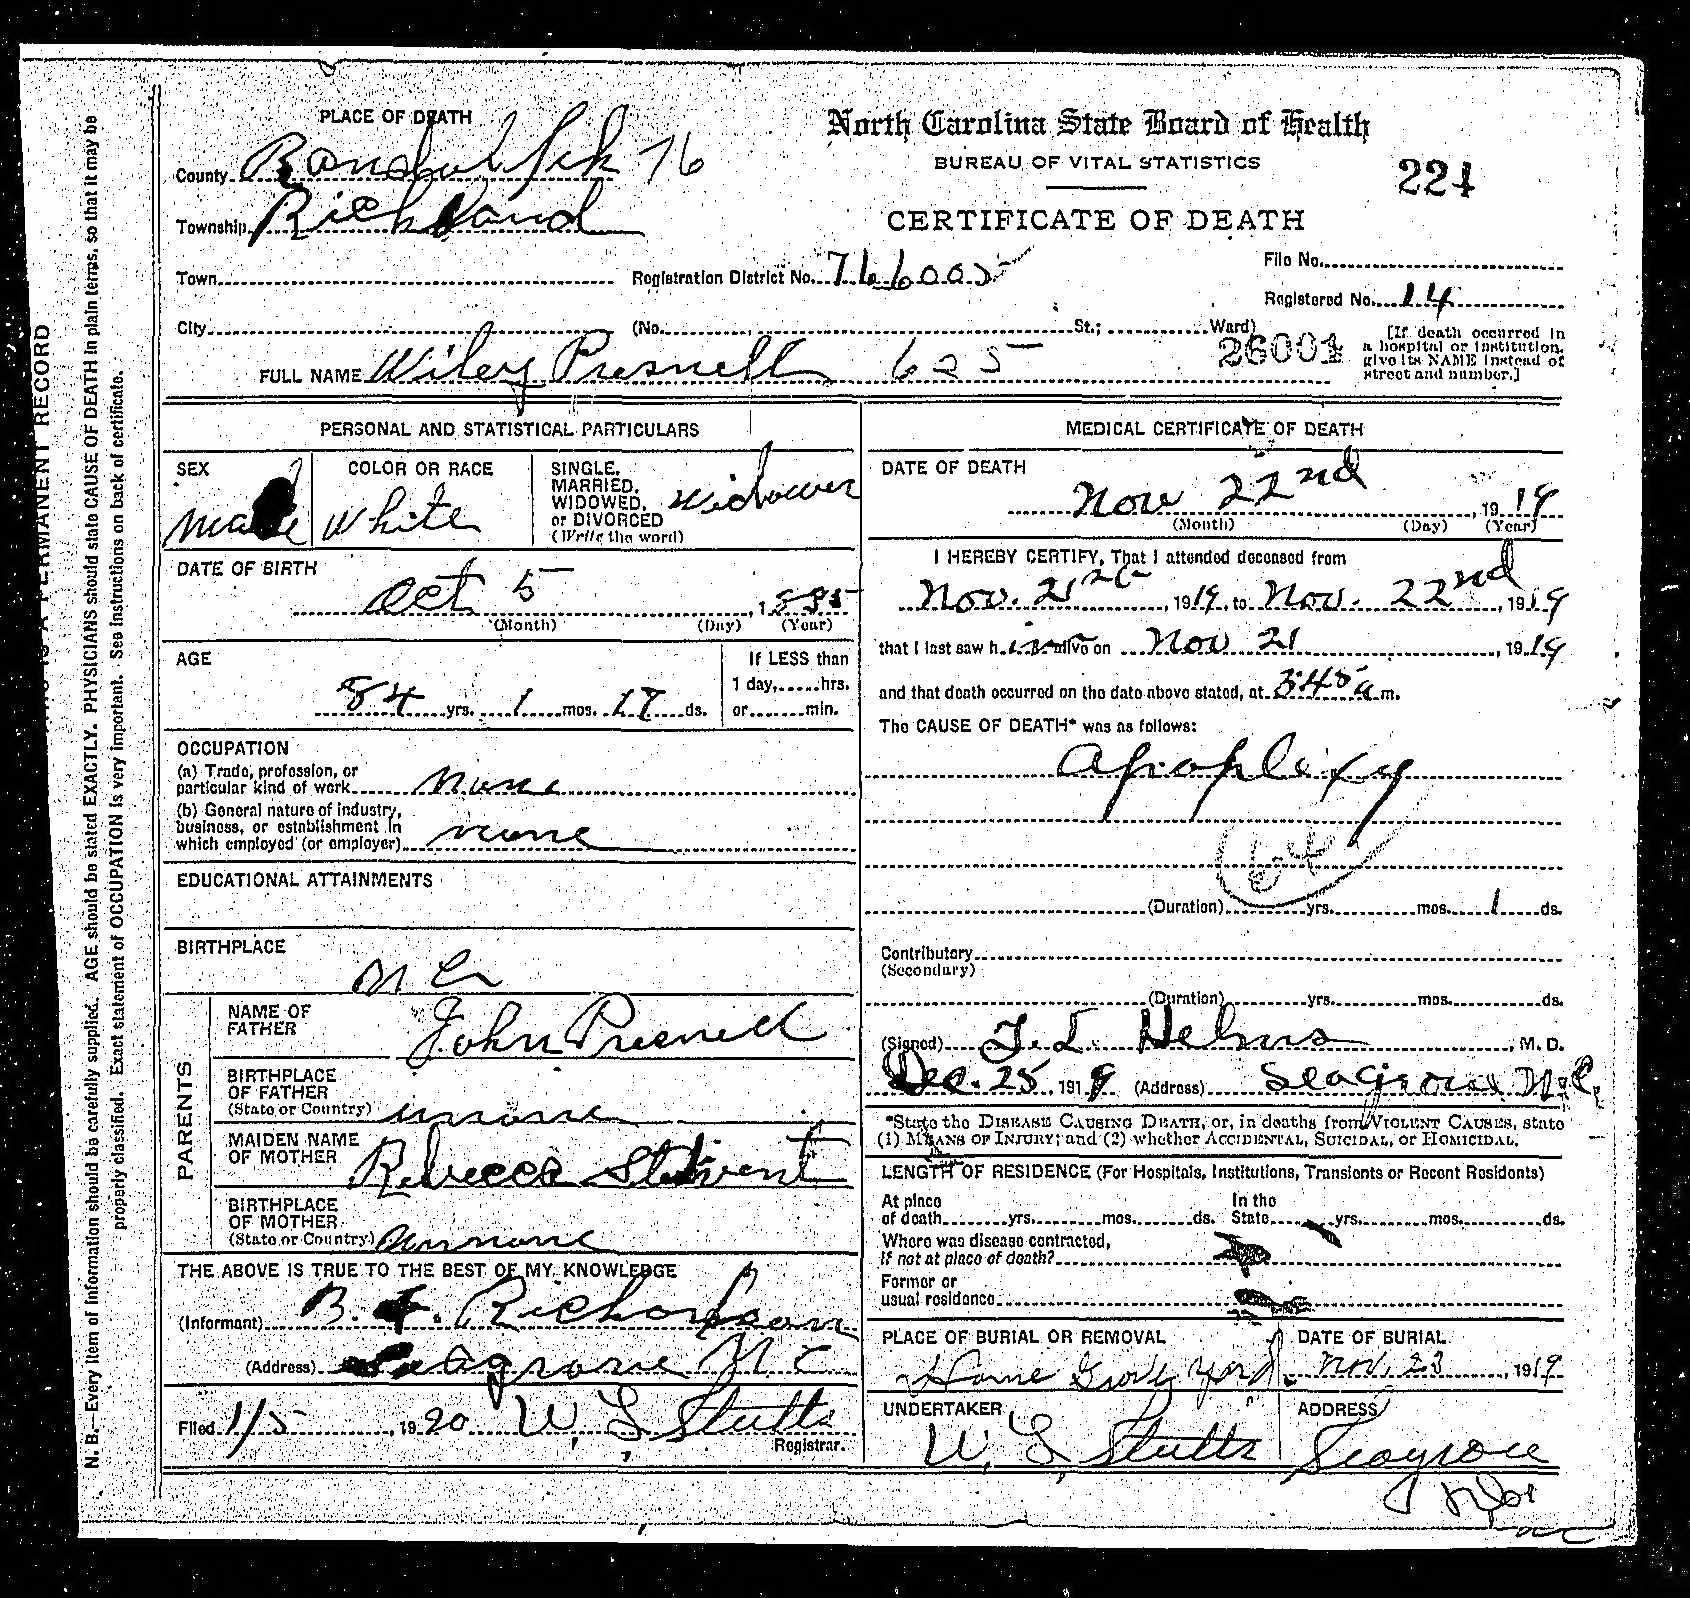 PLACE OF DEATH
County Randolph 76
Township Richland
Town
City
North Carolina State Board of Health
BUREAU OF VITAL STATISTICS
224
CERTIFICATE OF DEATH
Registration District No. 766005
File No.
Registered No. 14
(No. St.; Ward)
26001
[If death occurred in a hospital or institution, give its NAME instead of street and number.]
FULL NAME Wiley Presnell 625
PERSONAL AND STATISTICAL PARTICULARS
SEX
Male
COLOR OR RACE
White
SINGLE, MARRIED, WIDOWED, or DIVORCED (Write the word)
Widower
DATE OF BIRTH
Oct 5, 1835
(Month) (Day) (Year)
AGE
84 yrs. 1 mos. 17 ds.
If LESS than 1 day, hrs. or min.
OCCUPATION
(a) Trade, profession, or particular kind of work none
(b) General nature of industry, business, or establishment in which employed (or employer) none
EDUCATIONAL ATTAINMENTS
BIRTHPLACE
N C
PARENTS
NAME OF FATHER
John Presnell
BIRTHPLACE OF FATHER (State or Country)
MAIDEN NAME OF MOTHER
Rebecca
BIRTHPLACE OF MOTHER (State or Country)
THE ABOVE IS TRUE TO THE BEST OF MY KNOWLEDGE
(Informant) B. F. Richardson
(Address) Seagrove N C
Filed 1/5, 1920 W. L. Stutts
Registrar.
MEDICAL CERTIFICATE OF DEATH
DATE OF DEATH
Nov 22nd, 1919
(Month) (Day) (Year)
I HEREBY CERTIFY, That I attended deceased from
Nov. 21st, 1919, to Nov. 22nd, 1919
that I last saw him alive on Nov 21, 1919
and that death occurred on the date above stated, at 3:45 a m.
The CAUSE OF DEATH* was as follows:
Apoplexy
64
(Duration) yrs. mos. 1 ds.
Contributory
(Secondary)
(Duration) yrs. mos. ds.
(Signed) T. L. Helms, M. D.
Dec. 25, 1919 (Address) Seagrove N. C.
*State the DISEASE CAUSING DEATH, or, in deaths from VIOLENT CAUSES, state
(1) MEANS OF INJURY; and (2) whether ACCIDENTAL, SUICIDAL, or HOMICIDAL.
LENGTH OF RESIDENCE (For Hospitals, Institutions, Transients or Recent Residents)
At place of death yrs. mos. ds. In the State yrs. mos. ds.
Where was disease contracted,
If not at place of death?
Former or
usual residence
PLACE OF BURIAL OR REMOVAL
Home Grove yard.
DATE OF BURIAL
Nov. 23, 1919
UNDERTAKER
W. L. Stutts
ADDRESS
Seagrove
N. B.—Every item of information should be carefully supplied. AGE should be stated EXACTLY. PHYSICIANS should state CAUSE OF DEATH in plain terms, so that it may be
properly classified. Exact statement of OCCUPATION is very important. See instructions on back of certificate.
PERMANENT RECORD